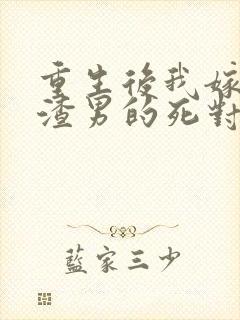 重生後我嫁
渣男的死對
藍家三少